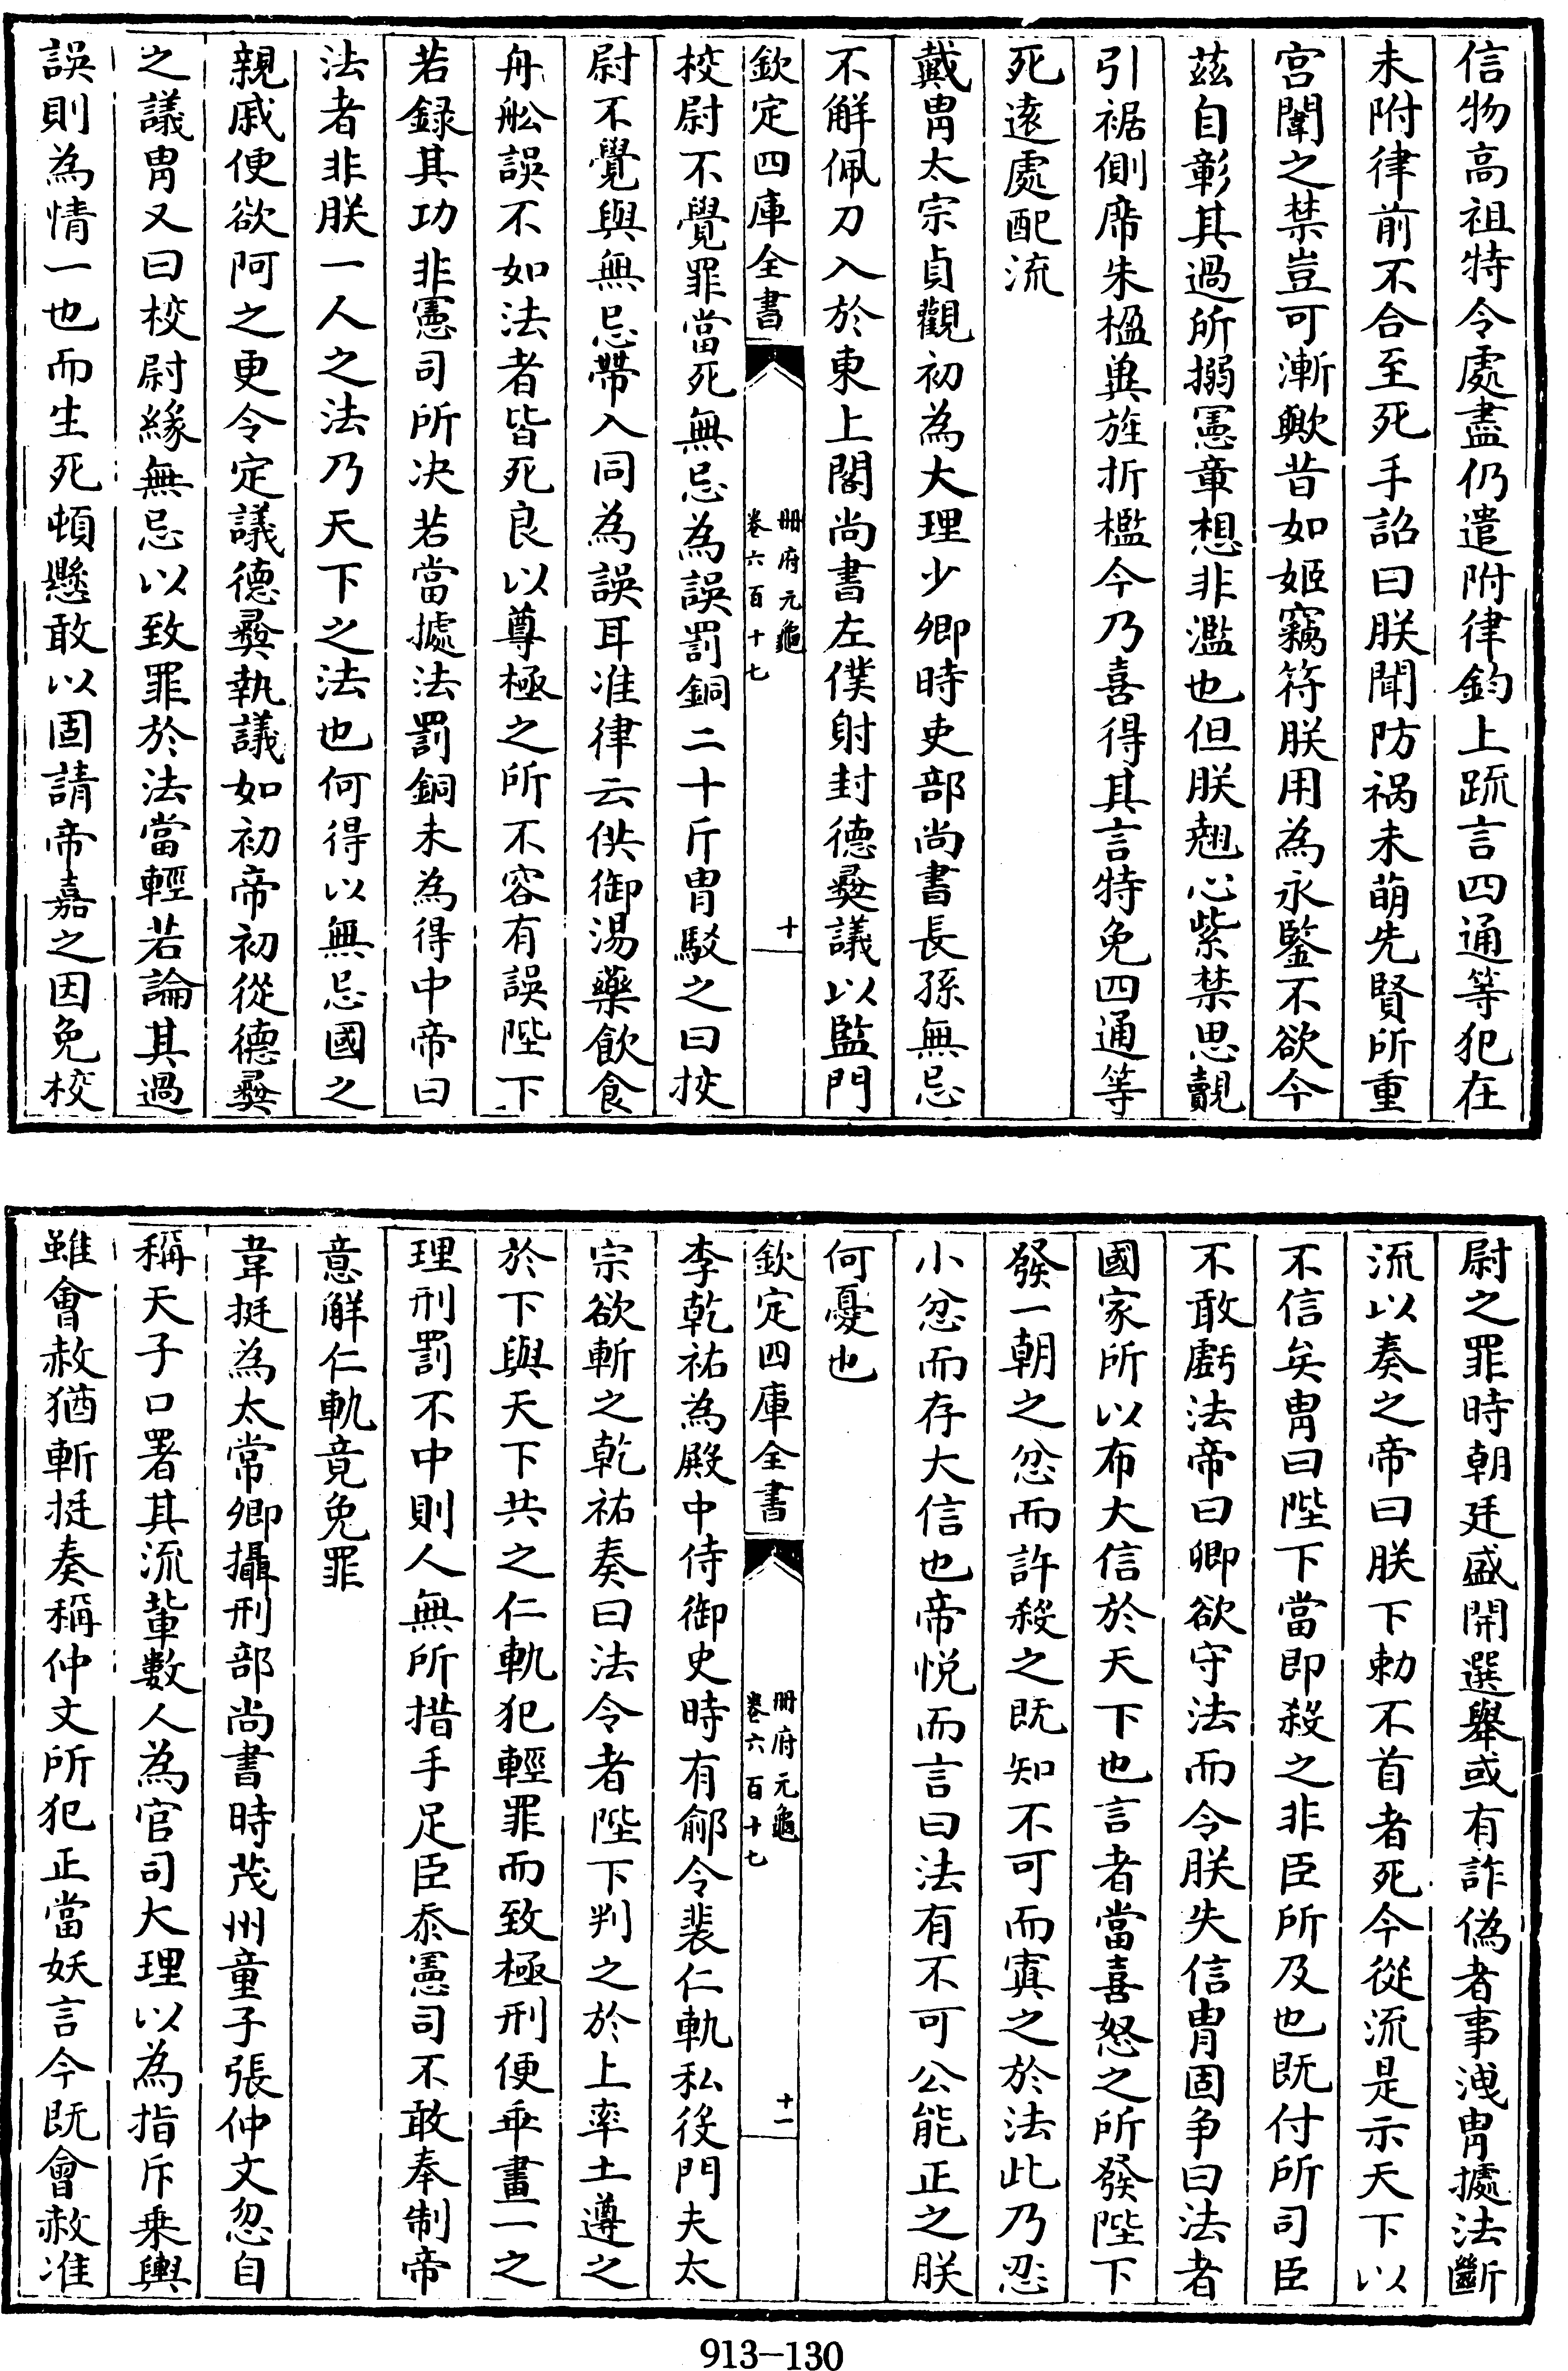 信物高祖特令處盡仍遣附律鈞上䟽言四通等犯在
未附律前不合至死手詔曰朕聞防禍未萌先賢所重
宫闈之禁豈可漸歟昔如姬竊符朕用為永鑒不欲今
茲自彰其過所搦憲章想非濫也但朕翹心紫禁思覿
引裾側席朱楹兾旌折檻今乃喜得其言特免四通等
死逺處配流
戴冑太宗貞觀初為大理少卿時吏部尚書長孫無忌
不解佩刀入於東上閤尚書左僕射封德彛議以監門
欽定四庫全書
冊府元龜
卷六百十七
十
校尉不覺罪當死無忌為誤罰銅二十斤冑駁之曰挍
尉不覺與無忌帶入同為誤耳准律云供御湯藥飲食
舟舩誤不如法者皆死良以尊極之所不容有誤陛下
若録其功非憲司所决若當據法罰銅未為得中帝曰
法者非朕一人之法乃天下之法也何得以無忌國之
親戚便欲阿之更令定議德彛執議如初帝初從德彛
之議冑又曰校尉緣無忌以致罪於法當輕若論其過
誤則為情一也而生死頓懸敢以固請帝嘉之因免校
尉之罪時朝廷盛開選舉或有詐偽者事洩冑據法斷
流以奏之帝曰朕下勅不首者死今從流是示天下以
不信矣冑曰陛下當即殺之非臣所及也既付所司臣
不敢虧法帝曰卿欲守法而令朕失信冑固争曰法者
國家所以布大信於天下也言者當喜怒之所發陛下
發一朝之忿而許殺之既知不可而寘之於法此乃忍
小忿而存大信也帝悦而言曰法有不可公能正之朕
何憂也
欽定四庫全書
冊府元龜
卷六百十七
十一
李乾祐為殿中侍御史時有鄃令裴仁軌私役門夫太
宗欲斬之乾祐奏曰法令者陛下判之於上率土遵之
於下與天下共之仁軌犯輕罪而致極刑便乖畫一之
理刑罰不中則人無所措手足臣忝憲司不敢奉制帝
意解仁軌竟免罪
韋挺為太常卿攝刑部尚書時茂州童子張仲文忽自
稱天子口署其流軰數人為官司大理以為指斥乗輿
雖會赦猶斬挺奏稱仲文所犯正當妖言今既會赦准
913-130